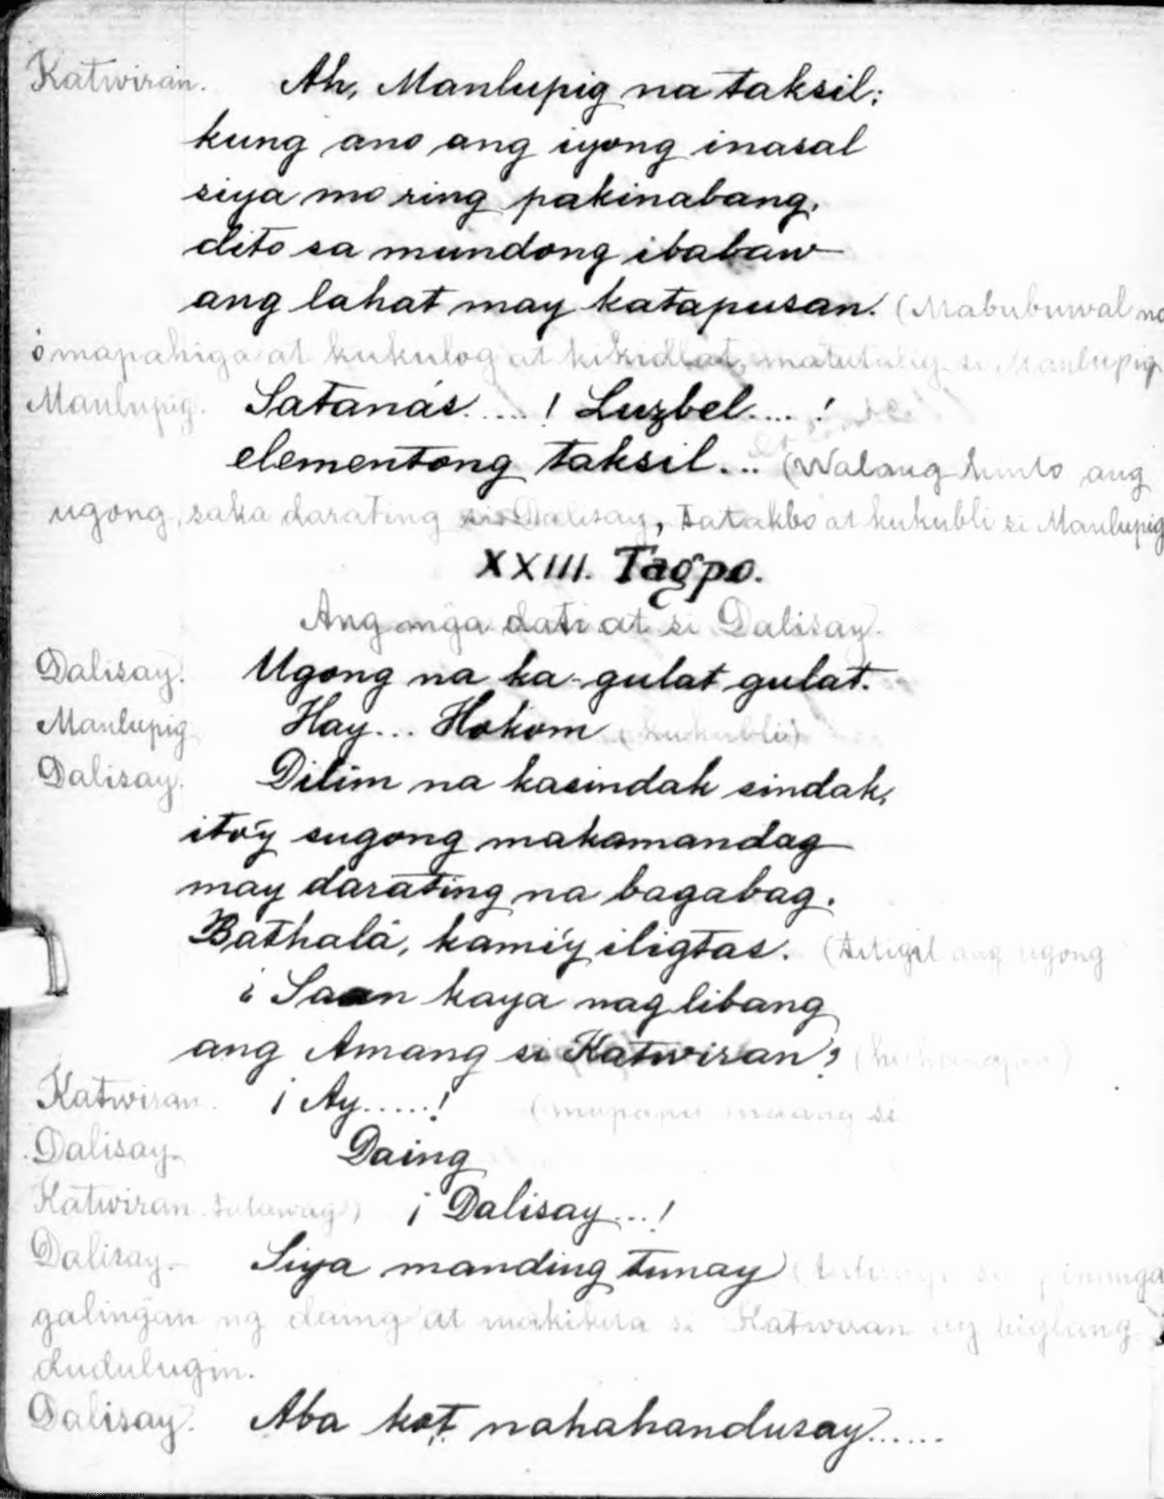 Katwiran. Ah, Manlupig na taksil:
kung ano ang iyong inasal
siya mo ring pakinabang,
dito sa mundong ibabaw
ang lahat may katapusan. (Mabubuwal na
ó mapahiga at kukulog at kikidlat, matutulig si Manlupig
Manlupig. Satanás.....! Luzbel....!
elementong taksil... (Walang hinto ang
ugong, saka darating si Dalisay, tatakbo at kukubli si Manlupig
XXIII. Tagpo.
Ang mga dati at si Dalisay.
Dalisay. Ugong na ka-gulat gulat.
Manlupig Hay... Hokom (kukubli)
Dalisay. Dilim na kasindak sindak,
ito'y sugong makamandag
may darating na bagabag.
Bathalá, kami'y iligtas. (titigil ang ugong
¿Saan kaya naglibang
ang Amang si Katwiran?
Katwiran. ¡Ay.....! si
Dalisay. Daing
Katwiran tatawag) ¡Dalisay...!
Dalisay.- Siya manding tunay
galingan ng daing at makikita si Katwiran ay biglang
dudulugin.
Dalisay. Aba kot nahahandusay......